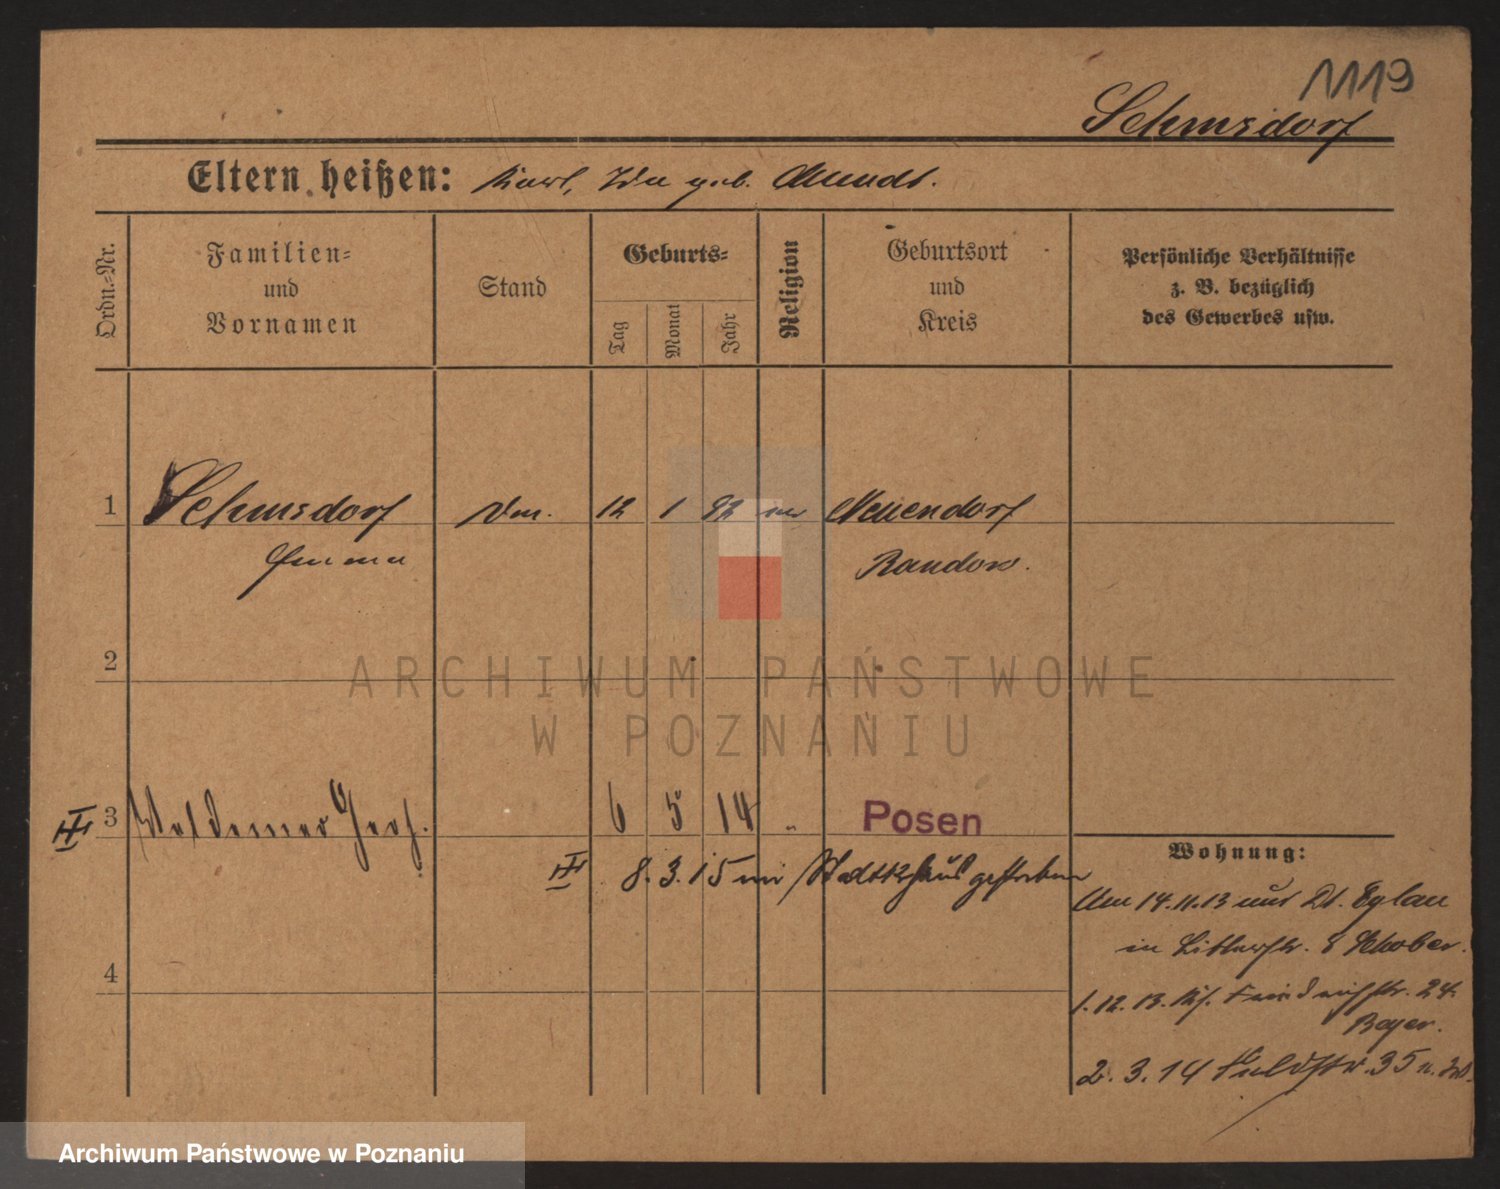 1119
Schmsdorf
Eltern heißen: Karl, Ida geb. Mundt.
Ordn.-Nr.
Familien-
und
Vornamen
Stand
Geburts-
Tag
Monat
Jahr
Religion
Geburtsort
und
Kreis
Persönliche Verhältnisse
z. B. bezüglich
des Gewerbes usw.
1 Schmsdorf 12 1 92 ev Neuendorf
Emma Randow.
2
ARCHIWUM PAŃSTWOWE
W POZNANIU
III 3 Woldemar 6 5 14 " Posen
III 8.3.15 im gestorben
Wohnung:
Am 14.11.13 aus Dt. Eylau
in 8 Schober.
1.12.13. 24.
Bayer.
4
2.3.14 Feldstr. 35
Archiwum Państwowe w Poznaniu